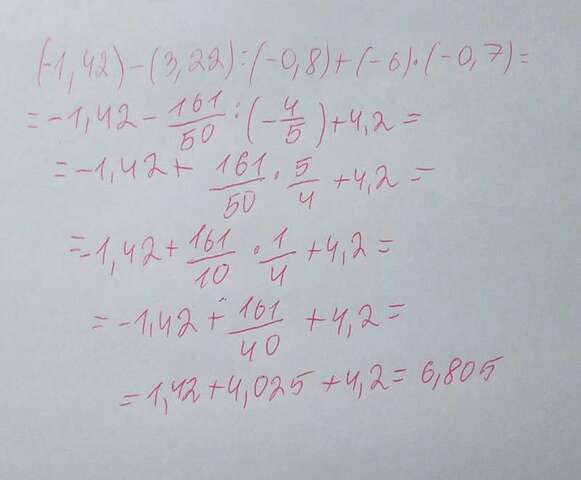 (-1,42)-(3,22):(-0,8)+(-6)·(-0,7)=
=-1,42-161/50:(-4/5)+4,2=
=-1,42+161/50·5/4+4,2=
=-1,42+161/10·1/4+4,2=
=-1,42+161/40+4,2=
=1,42+4,025+4,2=6,805